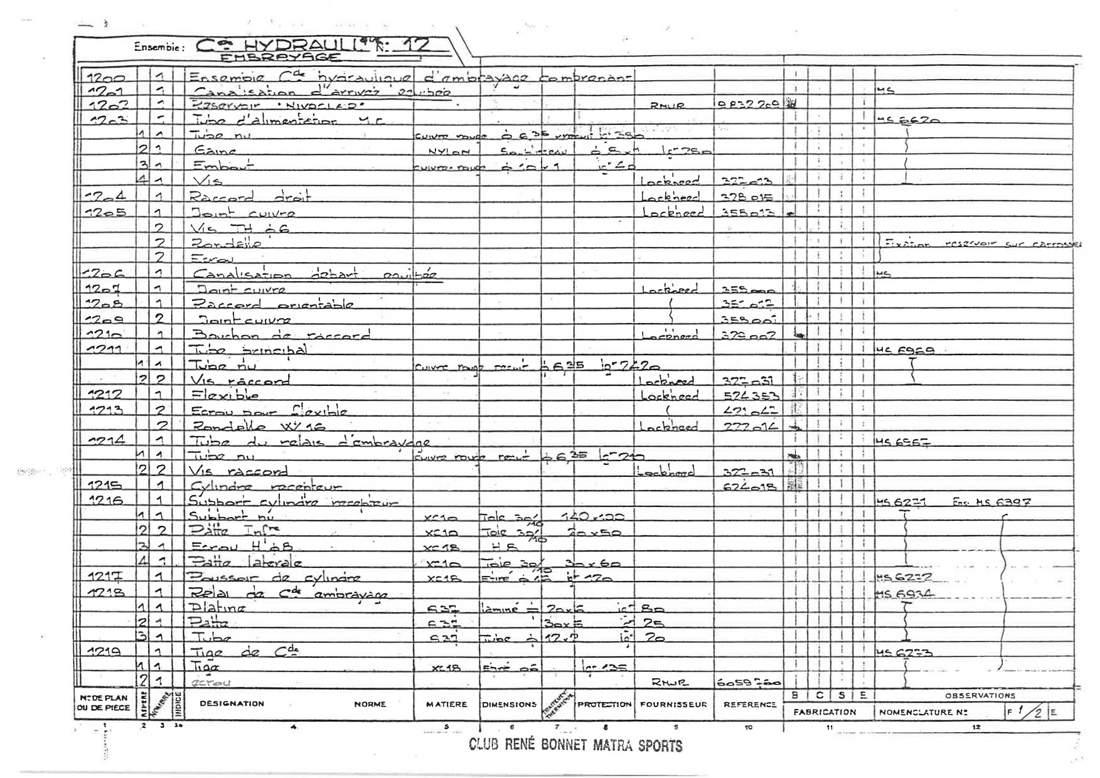 Ensemble : Cde HYDRAULIQUE N: 12
EMBRAYAGE
1200 1 Ensemble Cde hydraulique d'embrayage comprenant
1201 1 Canalisation d'arrivée équipée MS
1202 1 Réservoir "NIVOCLAIR" RMUR 9832209
1203 1 Tube d'alimentation M.C. MS 6620
1 1 Tube nu cuivre rouge ø 6,35 recuit lg
2 1 Gaine NYLON lg
3 1 Embout cuivre rouge ø 10 x 1 lg
4 1 Vis Lockheed 327013
1204 1 Raccord droit Lockheed 328015
1205 1 Joint cuivre Lockheed 355013
2 Vis TH ø6
2 Rondelle Fixation réservoir sur carrosse
2 Ecrou
1206 1 Canalisation départ équipée MS
1207 1 Joint cuivre Lockheed
1208 1 Raccord orientable
1209 2 Joint cuivre 355001
1210 1 Bouchon de raccord Lockheed 329002
1211 1 Tube principal MS 6969
1 1 Tube nu cuivre rouge recuit ø 6,35 lg 2420
2 2 Vis raccord Lockheed 327031
1212 1 Flexible Lockheed 524353
1213 2 Ecrou pour flexible 421047
2 Rondelle W 16 Lockheed 222014
1214 1 Tube du relais d'embrayage MS 6967
1 1 Tube nu cuivre rouge recuit ø 6,35 lg 210
2 2 Vis raccord Lockheed 327031
1215 1 Cylindre récepteur 624018
1216 1 Support cylindre récepteur MS 6271 Ens. MS 6397
1 1 Support nu XC10 Tole 30/10 140 x 100
2 2 Patte Infre XC10 Tole 30/10 20 x 50
3 1 Ecrou H ø8 XC18 H 8
4 1 Patte latérale XC10 Tole 30/10 30 x 60
1217 1 Poussoir de cylindre XC18 Etiré ø 12 lg 120
1218 1 Relai de Cde embrayage MS 6934
1 1 Platine laminé 20 x 5 lg 80
2 1 Patte 30 x 5 25
3 1 Tube Tube ø 12 x 2 lg 20
1219 1 Tige de Cde MS 6273
1 1 Tige XC18 Etiré lg 135
2 1 écrou RMUR 6059760
N° DE PLAN OU DE PIÈCE REPÈRE NOMBRE INDICE DÉSIGNATION NORME MATIÈRE DIMENSIONS TRAITEMENT THERMIQUE PROTECTION FOURNISSEUR RÉFÉRENCE B C S E FABRICATION OBSERVATIONS NOMENCLATURE N° F 1/2 E
1 2 3 3a 4 5 6 7 8 9 10 11 12
CLUB RENÉ BONNET MATRA SPORTS